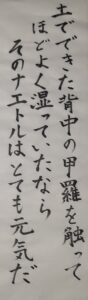 土でできた背中の甲羅を触って
ほどよく湿っていたなら
そのナエトルはとても元気だ